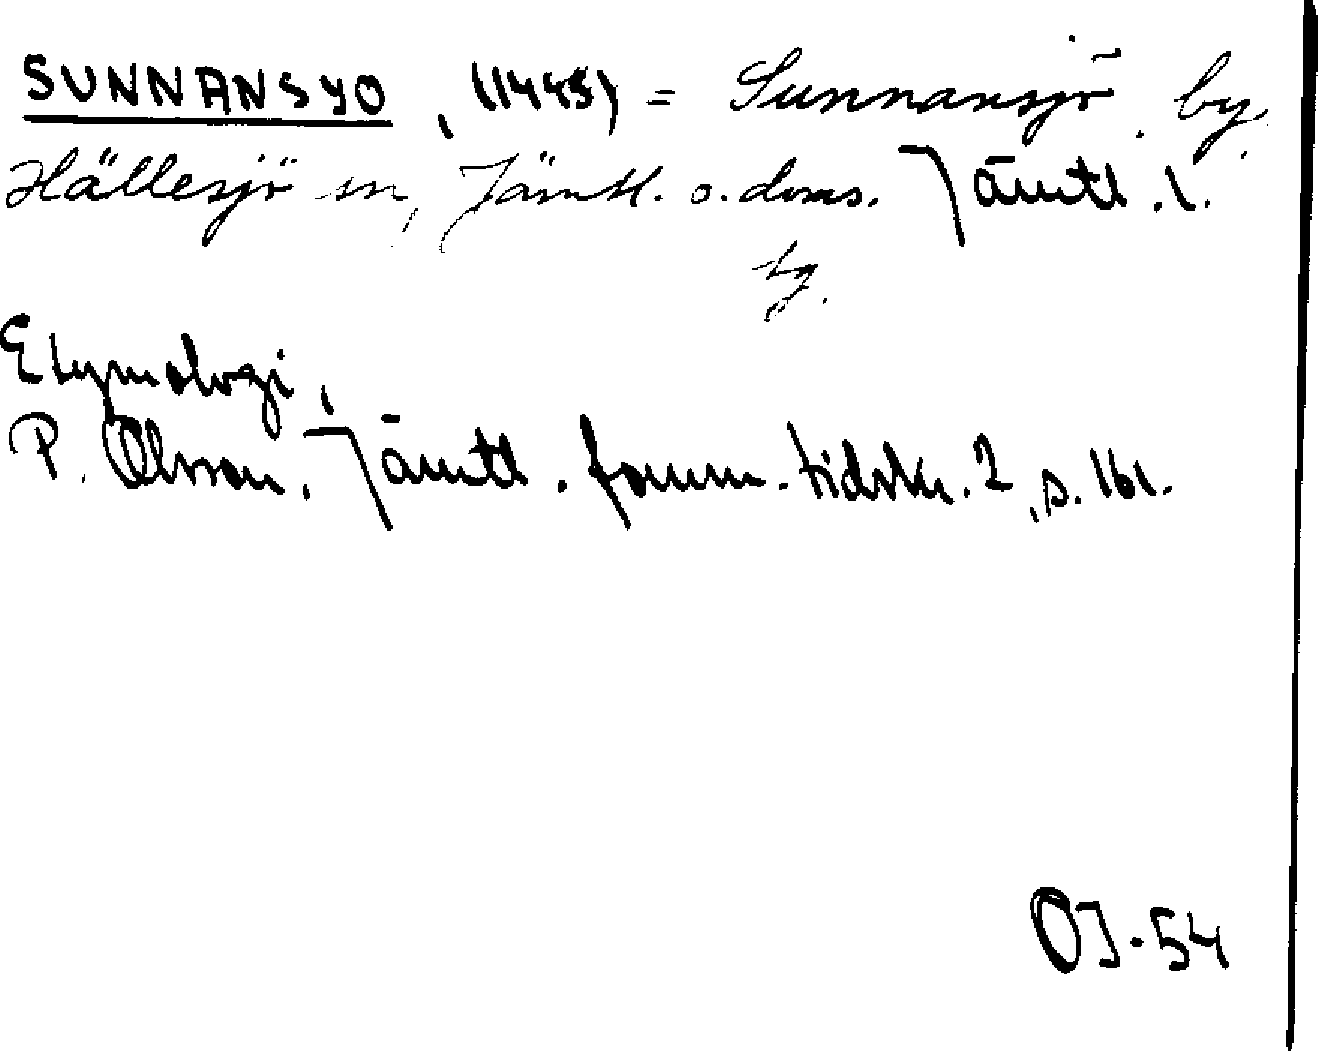 SUNNANSYO, (1445) = Sunnansjö, by,
Hällesjö sn, Jämtl. o. doms. Jämtl. l.
tg.
Etymologi,
P. Olsson, Jämtl. fornm. tidskr. 2, s. 161.
OJ-54